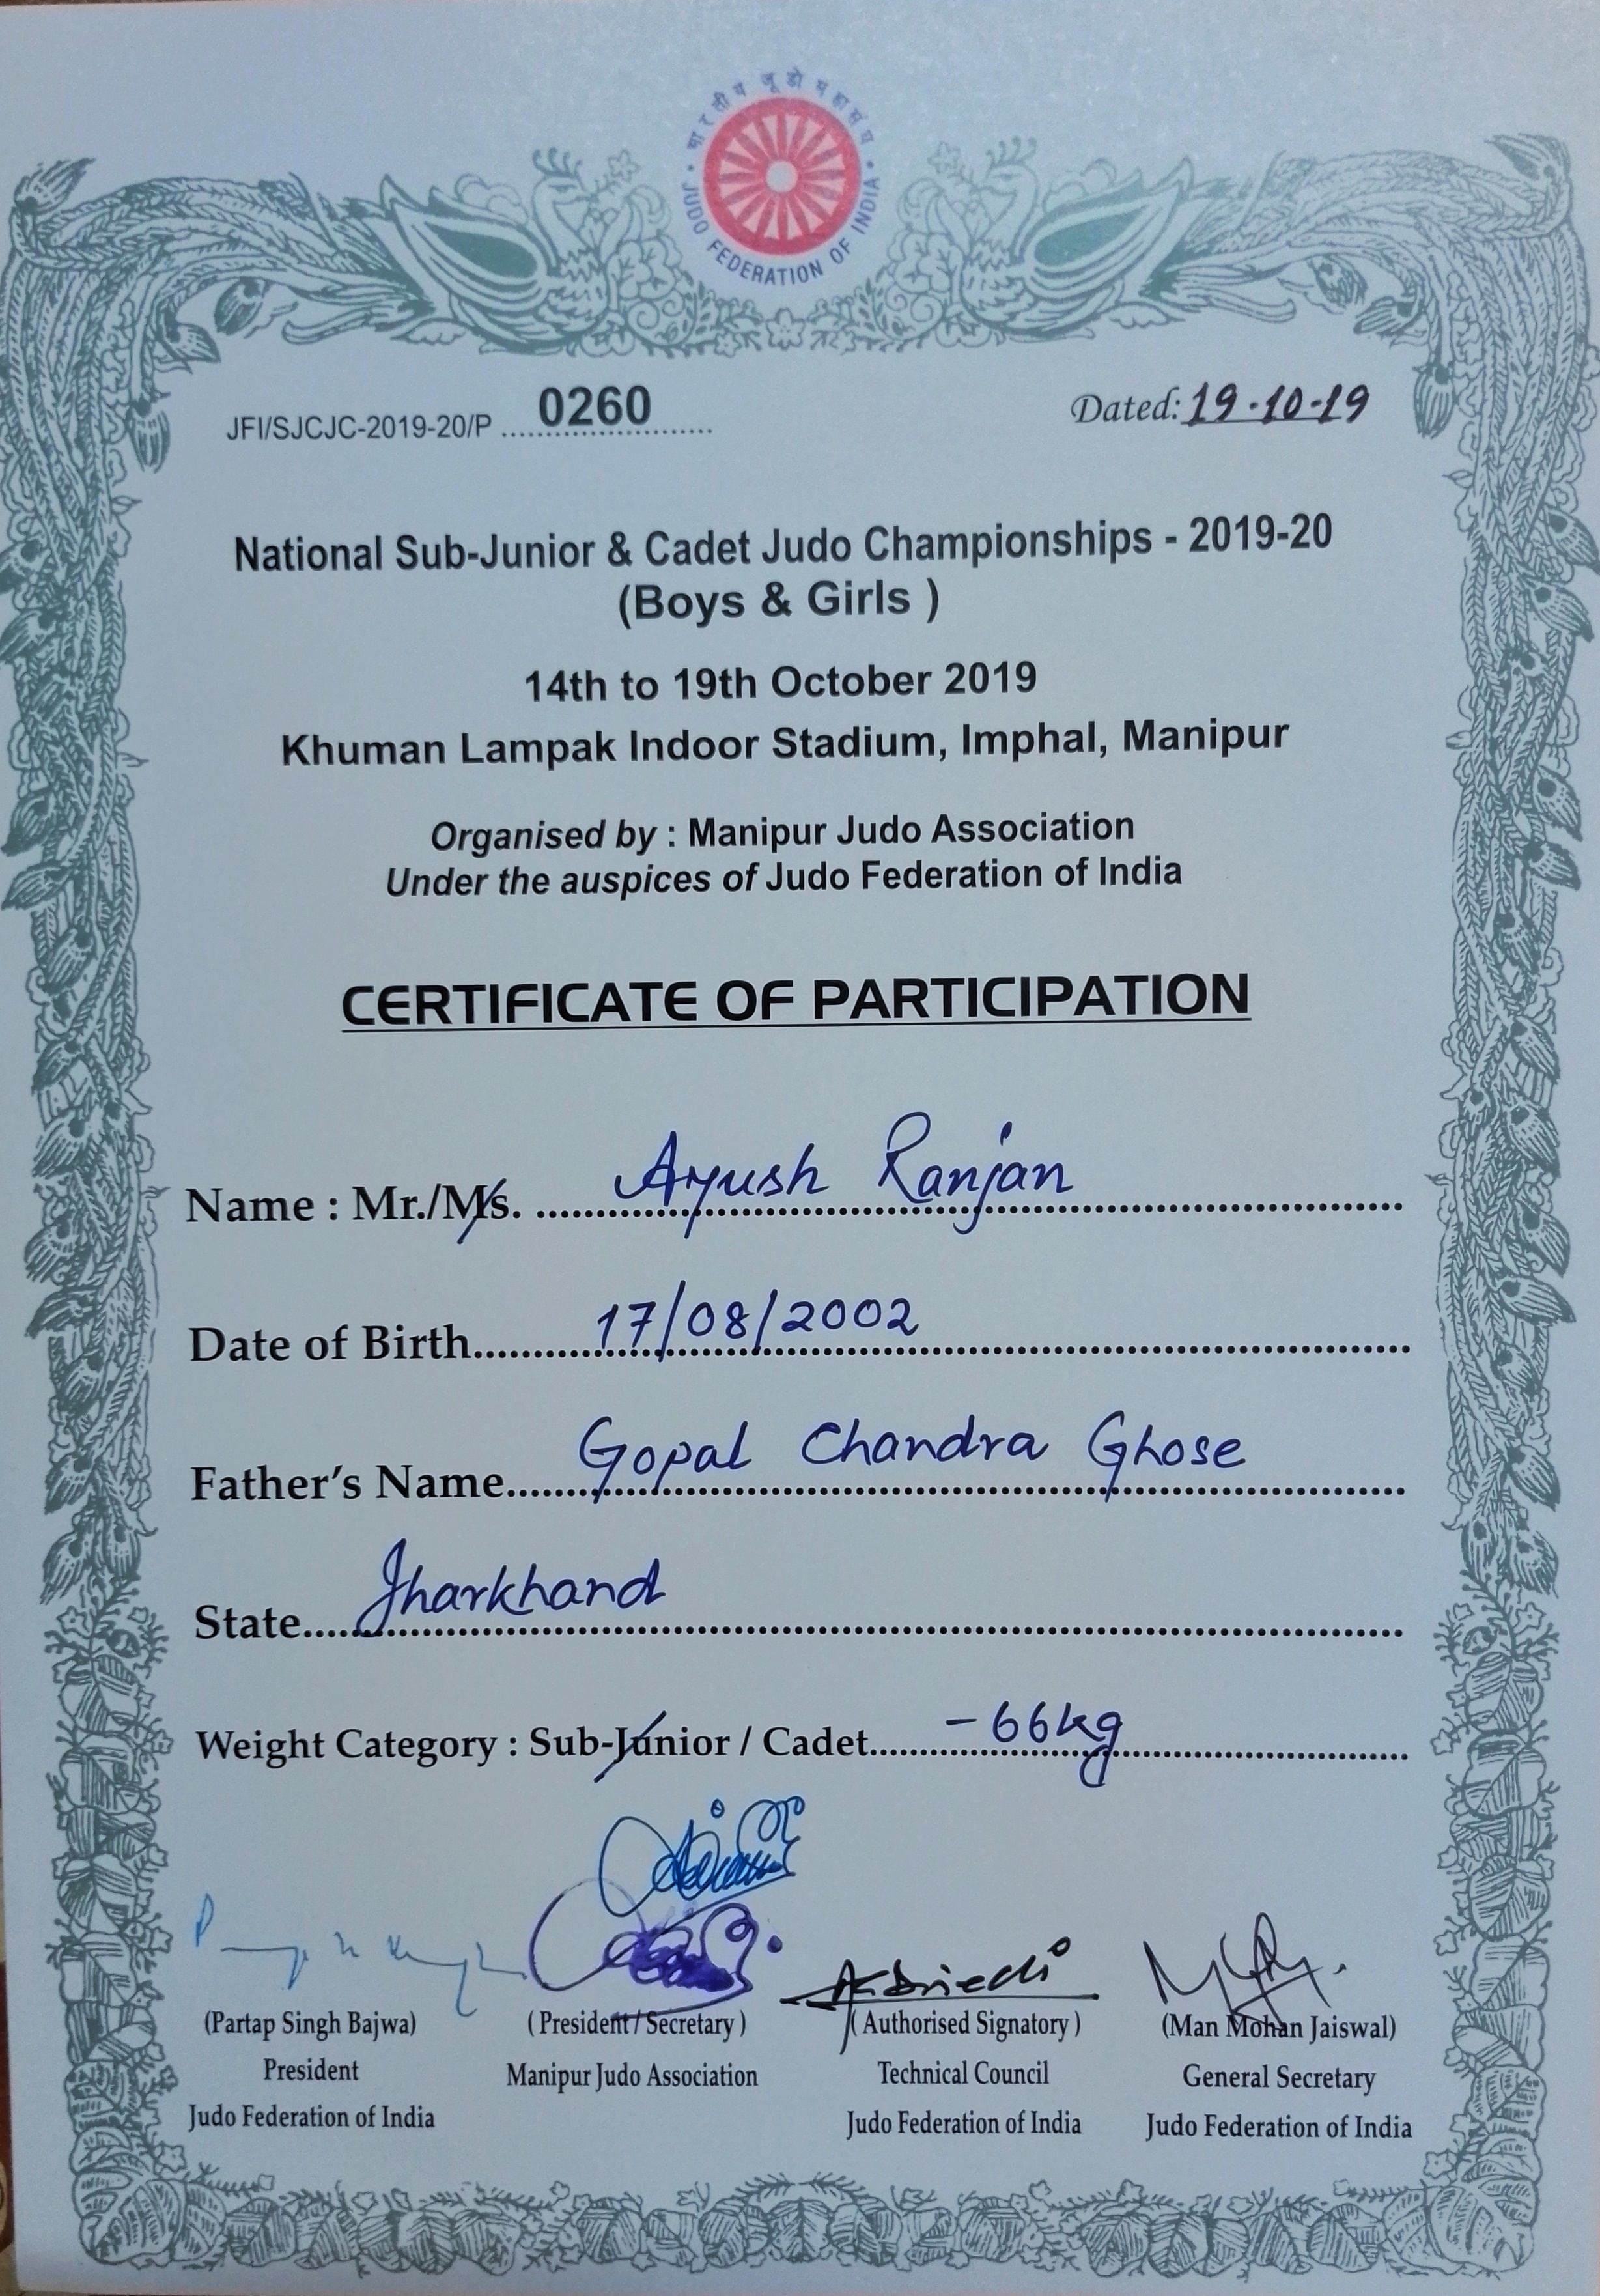 भारतीय जूडो महासंघ
JUDO FEDERATION OF INDIA
JFI/SJCJC-2019-20/P ....0260.... Dated: 19-10-19
National Sub-Junior & Cadet Judo Championships - 2019-20
(Boys & Girls )
14th to 19th October 2019
Khuman Lampak Indoor Stadium, Imphal, Manipur
Organised by : Manipur Judo Association
Under the auspices of Judo Federation of India
CERTIFICATE OF PARTICIPATION
Name : Mr./Ms. Ayush Ranjan
Date of Birth 17/08/2002
Father's Name Gopal Chandra Ghose
State Jharkhand
Weight Category : Sub-Junior / Cadet -66kg
(Partap Singh Bajwa) ( President / Secretary ) ( Authorised Signatory ) (Man Mohan Jaiswal)
President Manipur Judo Association Technical Council General Secretary
Judo Federation of India Judo Federation of India Judo Federation of India